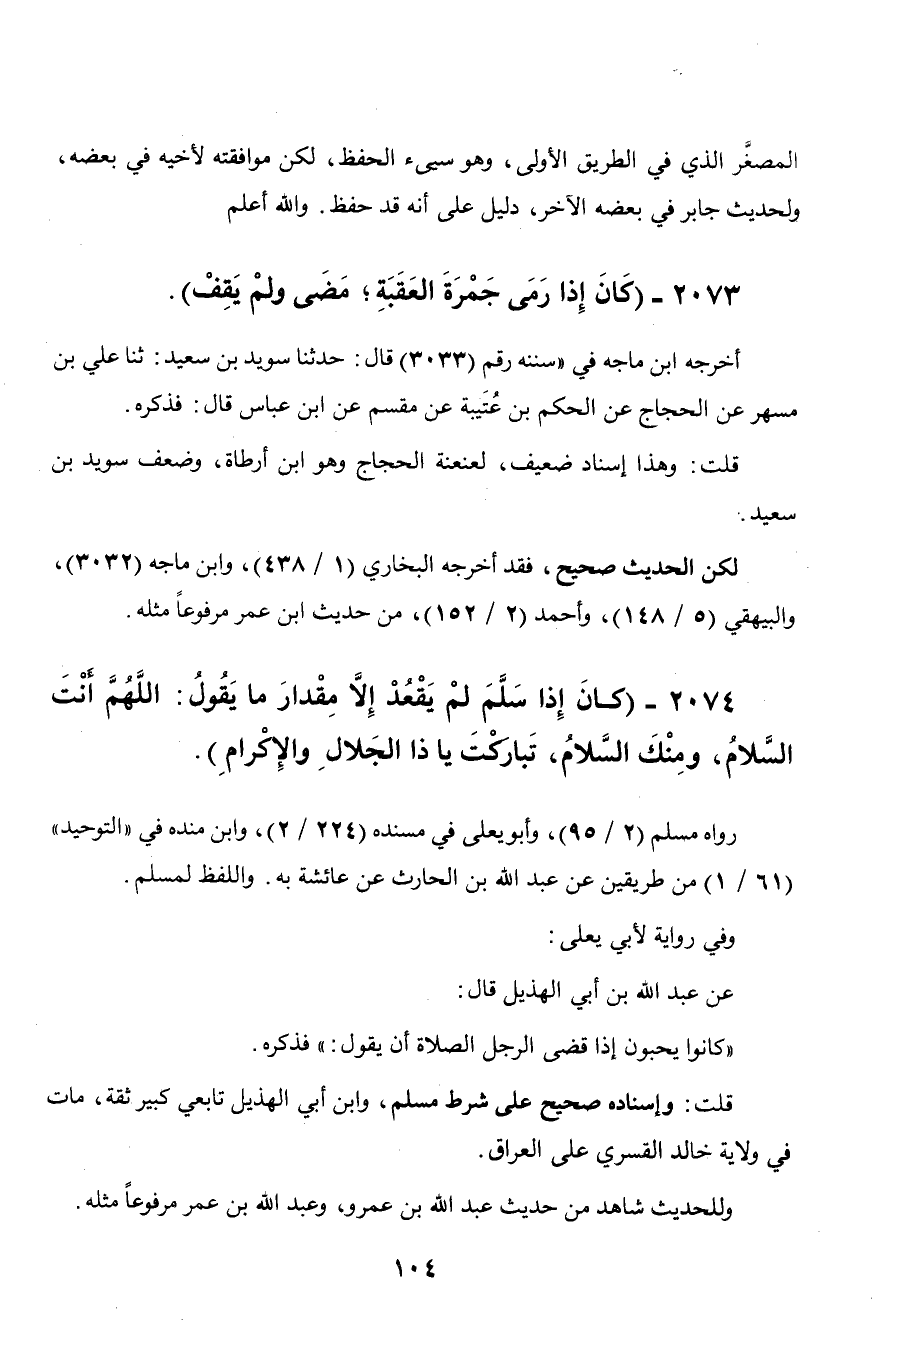 المصغَّر الذي في الطريق الأولى، وهو سيىء الحفظ، لكن موافقته لأخيه في بعضه،
ولحديث جابر في بعضه الآخر، دليل على أنه قد حفظ. والله أعلم
٢٠٧٣ - (كَانَ إِذا رَمَى جَمْرَةَ العَقَبَةِ؛ مَضَى ولمْ يَقِفْ).
أخرجه ابن ماجه في «سننه رقم (٣٠٣٣) قال: حدثنا سويد بن سعيد: ثنا علي بن
مسهر عن الحجاج عن الحكم بن عُتَيبة عن مقسم عن ابن عباس قال: فذكره.
قلت: وهذا إسناد ضعيف، لعنعنة الحجاج وهو ابن أرطاة، وضعف سويد بن
سعيد.
لكن الحديث صحيح، فقد أخرجه البخاري (١ / ٤٣٨)، وابن ماجه (٣٠٣٢)،
والبيهقي (٥ / ١٤٨)، وأحمد (٢ / ١٥٢)، من حديث ابن عمر مرفوعاً مثله.
٢٠٧٤ - (كـانَ إِذا سَلَّمَ لمْ يَقْعُدْ إِلَّا مِقْدارَ ما يَقُولُ: اللَّهُمَّ أَنْتَ
السَّلامُ، ومِنْكَ السَّلامُ، تَباركْتَ يا ذا الجَلالِ والإِكْرامِ).
رواه مسلم (٢ / ٩٥)، وأبو يعلى في مسنده (٢٢٤ / ٢)، وابن منده في «التوحيد»
(٦١ / ١) من طريقين عن عبد الله بن الحارث عن عائشة به. واللفظ لمسلم.
وفي رواية لأبي يعلى:
عن عبد الله بن أبي الهذيل قال:
«كانوا يحبون إذا قضى الرجل الصلاة أن يقول:» فذكره.
قلت: وإسناده صحيح على شرط مسلم، وابن أبي الهذيل تابعي كبير ثقة، مات
في ولاية خالد القسري على العراق.
وللحديث شاهد من حديث عبد الله بن عمرو، وعبد الله بن عمر مرفوعاً مثله.
١٠٤